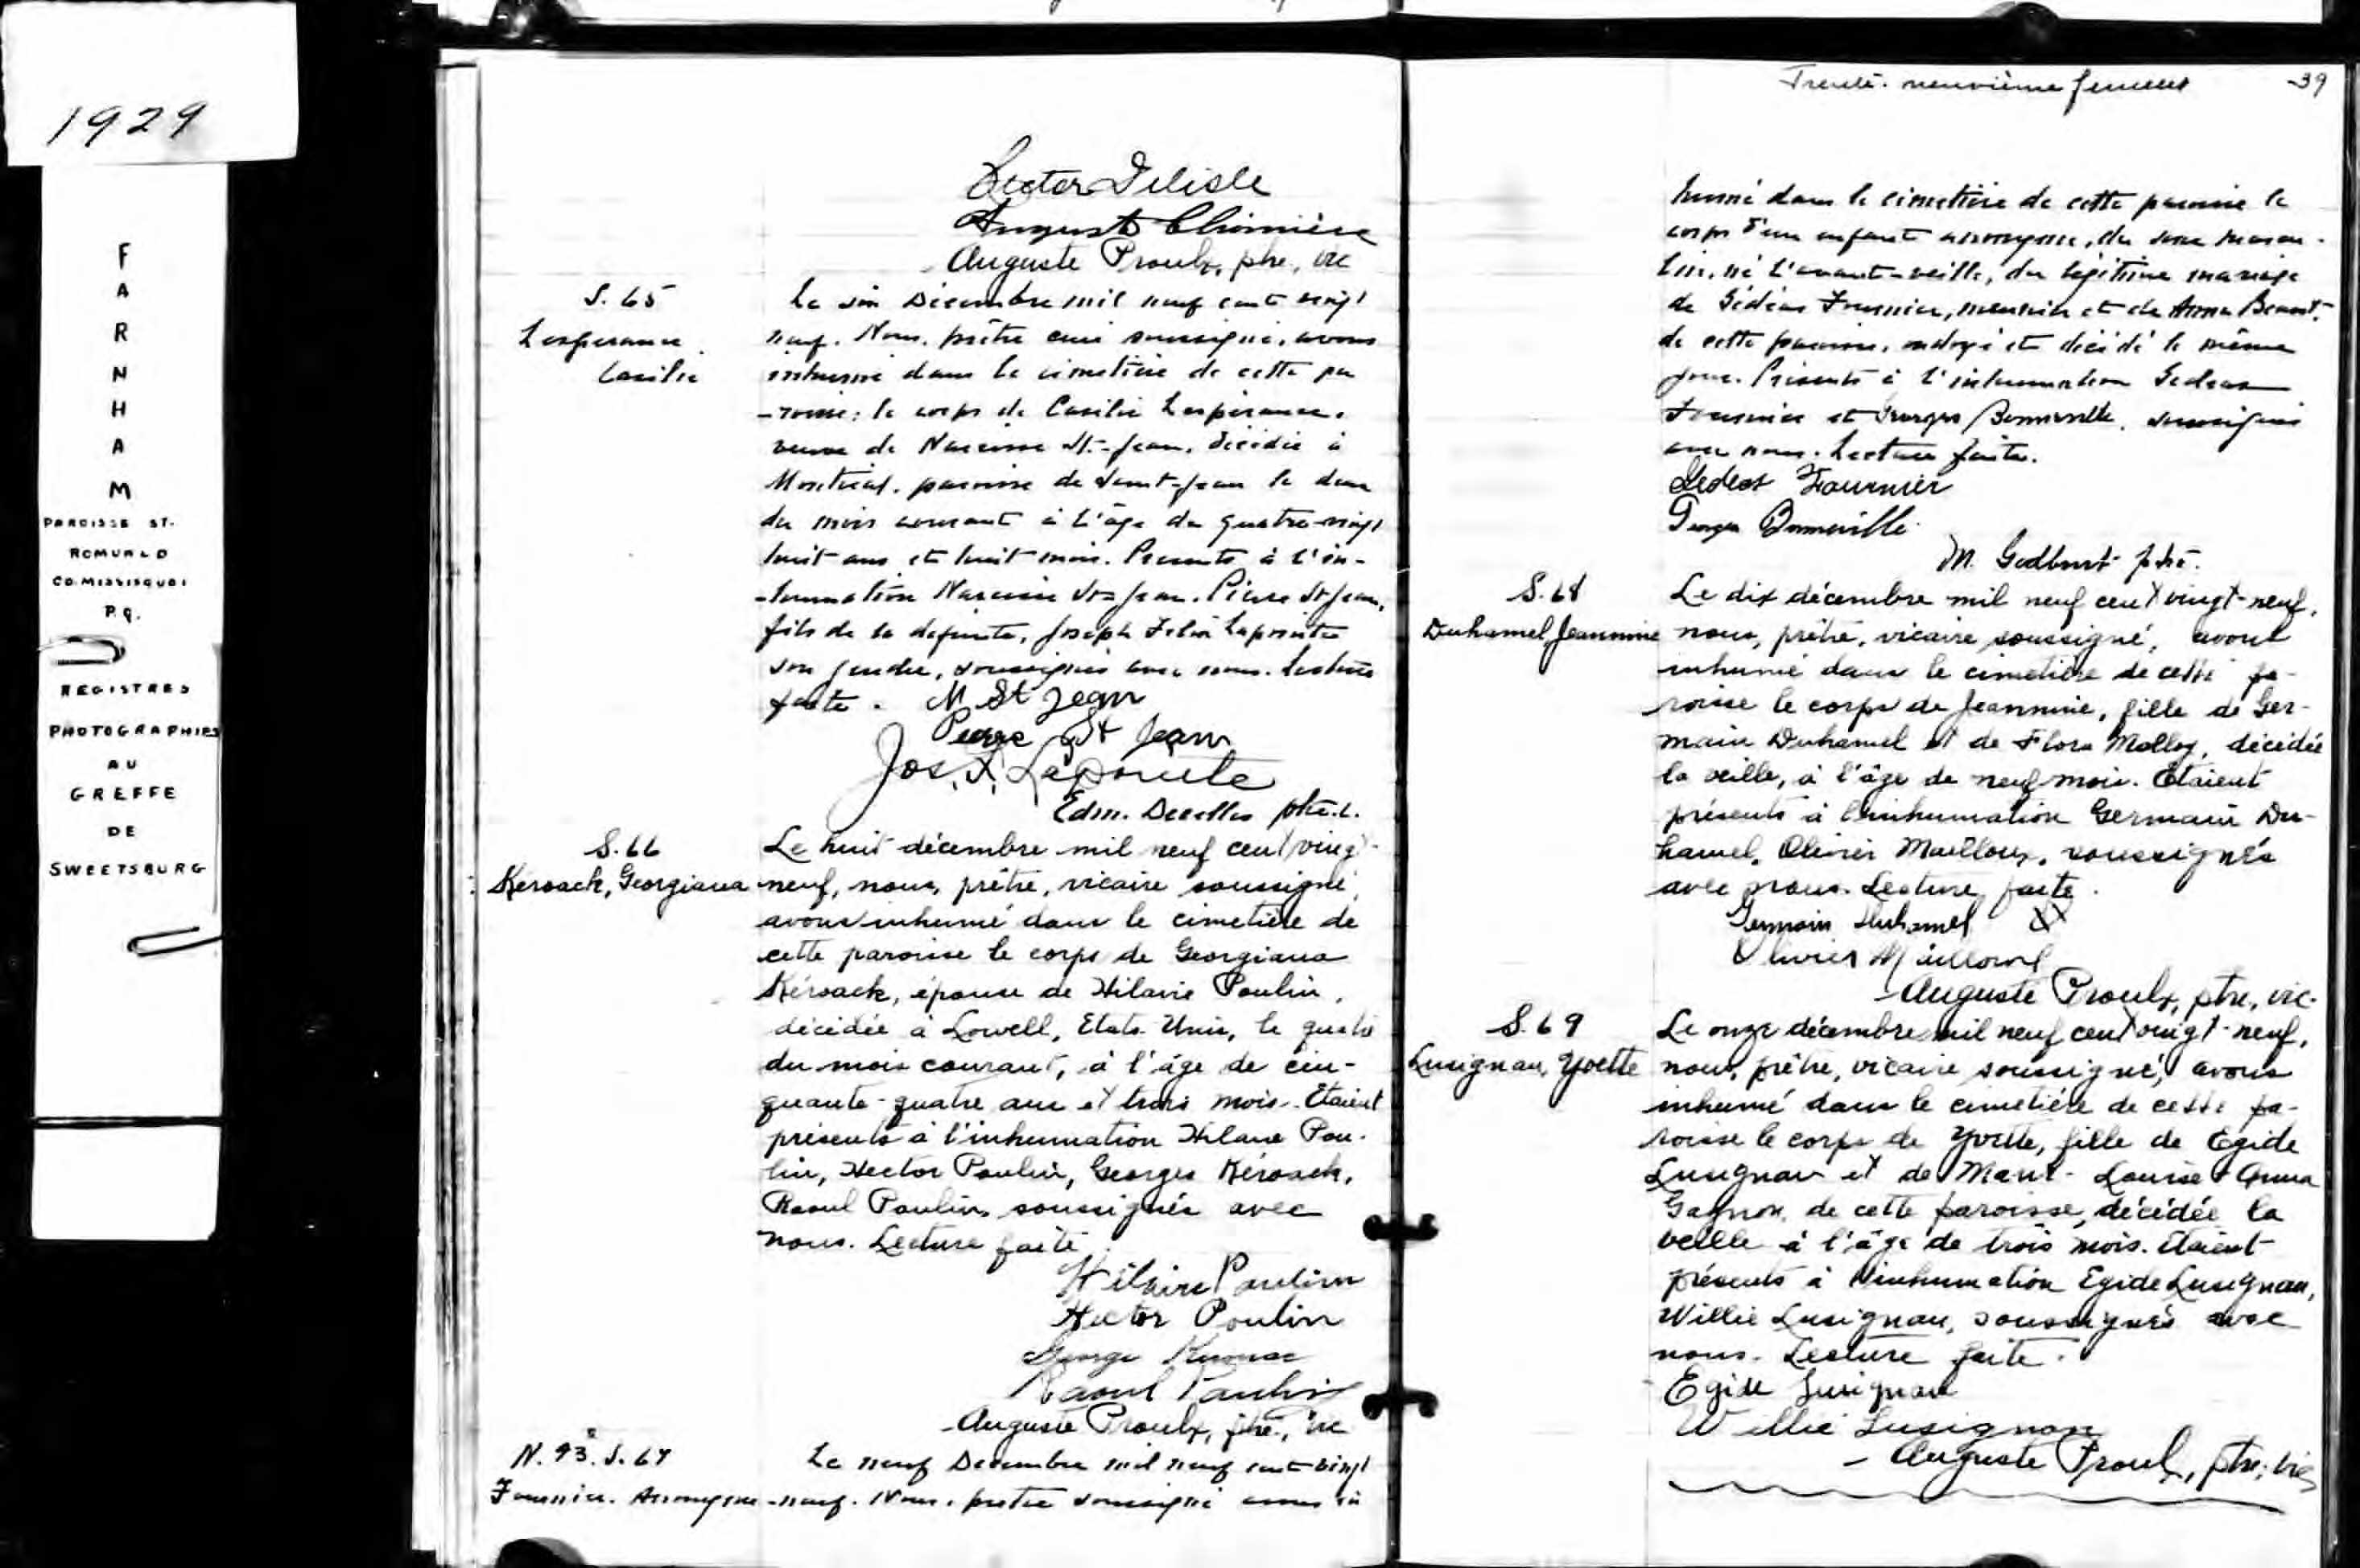 1929
F
A
R
N
H
A
M
PAROISSE ST.
ROMUALD
CO. MISSISQUOI
P.Q.
REGISTRES
PHOTOGRAPHIES
AU
GREFFE
DE
SWEETSBURG
Hector Delisle
Auguste
Auguste Proulx, ptre, vic
S. 65
Lesperance
Casilie
Le six Décembre mil neuf cent vingt
neuf. Nous, prêtre curé soussigné, avons
inhumé dans le cimetière de cette pa
-roisse: le corps de Casilie Lespérance,
veuve de Narcisse St.-Jean, décédée à
Montréal, paroisse de Saint-Jean le deux
du mois courant à l'âge de quatre-vingt
huit ans et huit mois. Présents à l'in-
-humation Narcisse St-Jean, Pierre St-Jean,
fils de la défunte, Joseph Félix Lapointe
son gendre, soussignés avec nous. Lecture
faite. N St Jean
Pierre St Jean
Jos. F. Lapointe
Edm. Decelles ptre.c.
S. 66
Kéroack, Georgiana
Le huit décembre mil neuf cent vingt-
neuf, nous, prêtre, vicaire soussigné,
avons inhumé dans le cimetière de
cette paroisse le corps de Georgiana
Kéroack, épouse de Hilaire Poulin,
décédée à Lowell, Etats-Unis, le quatre
du mois courant, à l'âge de cin-
quante-quatre ans et trois mois. Etaient
présents à l'inhumation Hilaire Pou-
lin, Hector Poulin, Georges Kéroack,
Raoul Poulin, soussignés avec
nous. Lecture faite.
Hilaire Poulin
Hector Poulin
George
Raoul Poulin
Auguste Proulx, ptre, vic
N. 93. S. 67
Fournier. Anonyme
Le neuf Décembre mil neuf cent vingt
-neuf. Nous, prêtre soussigné avons in
Trente-neuvième feuillet 39
humé dans le cimetière de cette paroisse le
corps d'un enfant anonyme, du sexe mascu-
lin, né l'avant-veille, du légitime mariage
de Gédéas Fournier, meunier et de Anna Benoit,
de cette paroisse, ondoyé et décédé le même
jour. Présents à l'inhumation Gedeas
Fournier et Georges Bonneville, soussignés
avec nous. Lecture faite.
Gedeas Fournier
Georges Bonneville
M. Godbout ptre.
S. 68
Duhamel, Jeannine
Le dix décembre mil neuf cent vingt-neuf,
nous, prêtre, vicaire soussigné, avons
inhumé dans le cimetière de cette pa-
roisse le corps de Jeannine, fille de Ger-
main Duhamel et de Flora Molloy, décédée
la veille, à l'âge de neuf mois. Etaient
présents à l'inhumation Germain Du-
hamel, Olivier Mailloux, soussignés
avec nous. Lecture faite.
Germain Duhamel
Olivier Mailloux
Auguste Proulx, ptre, vic.
S. 69
Lusignan, Yvette
Le onze décembre mil neuf cent vingt-neuf,
nous, prêtre, vicaire soussigné, avons
inhumé dans le cimetière de cette pa-
roisse le corps de Yvette, fille de Egide
Lusignan et de Marie-Louise Anna
Gagnon, de cette paroisse, décédée la
veille à l'âge de trois mois. Etaient
présents à l'inhumation Egide Lusignan,
Willie Lusignan, soussignés avec
nous. Lecture faite.
Egide Lusignan
Willie Lusignan
Auguste Proulx, ptre, vic